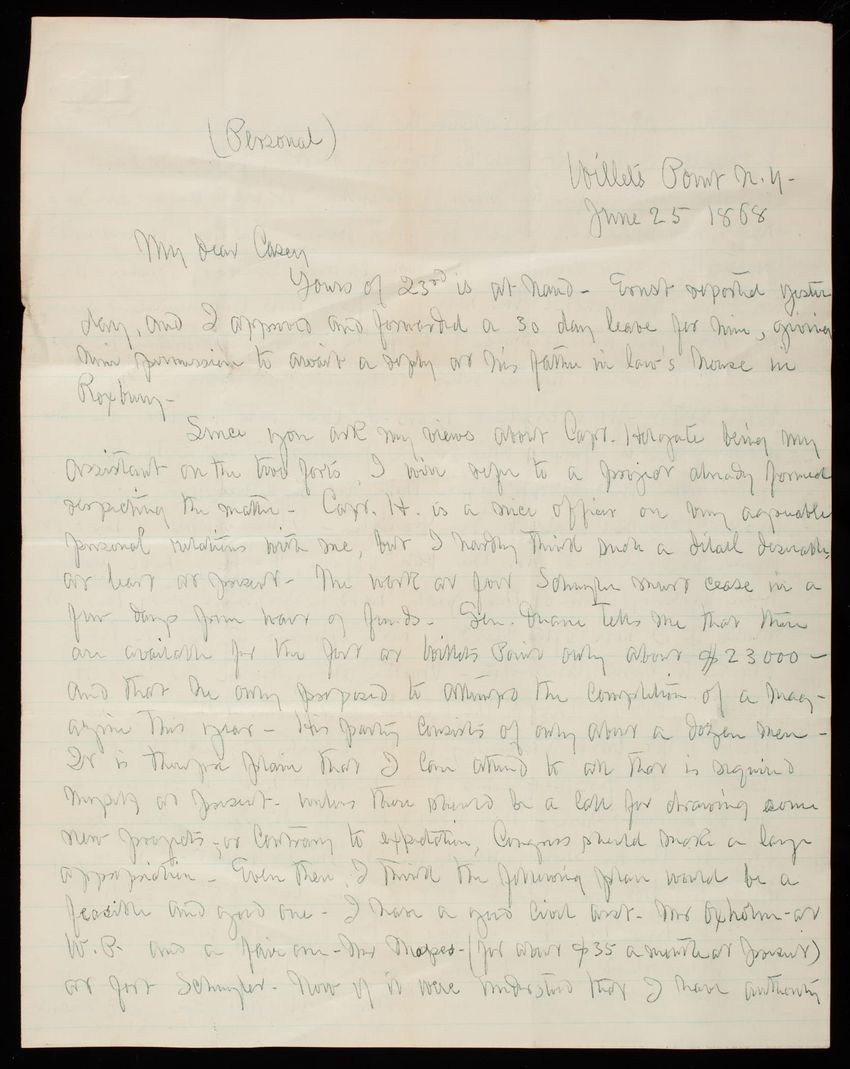 (Personal)
Willets Point N.Y-
June 25 1868
My dear Casey
Yours of 23rd is at hand - Ernst reported yester
day, and I approved and forwarded a 30 day leave for him, giving
him permission to await a reply at his father in law's house in
Roxbury-
Since you ask my views about Capt. Holgate being my
assistant on the two forts, I will refer to a project already formed
respecting the matter - Capt. H. is a nice officer on very agreeable
personal relations with me, but I hardly think such a detail desirable,
at least at present - The work at fort Schuyler must cease in a
few days from want of funds - Gen. Duane tells me that there
are available for the fort at Willets Point only about $23000 -
and that he only proposed to attempt the completion of a mag-
azine this year - His party consists of only about a dozen men -
It is therefore plain that I can attend to all that is required
myself at present - unless there should be a call for drawing some
new projects, or contrary to expectation, Congress should make a large
appropriation - Even then, I think the following plan would be a
feasible and good one - I have a good civil asst - Mr Oxholm - at
W.P. and a fair one - Mr Mapes - (for about $35 a month at present)
at fort Schuyler - Now if it were understood that I have authority